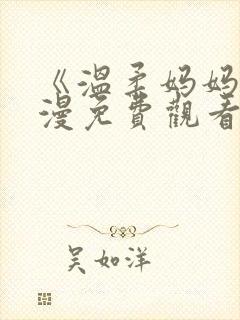 《溫柔妈妈
漫免費觀看
吴如洋